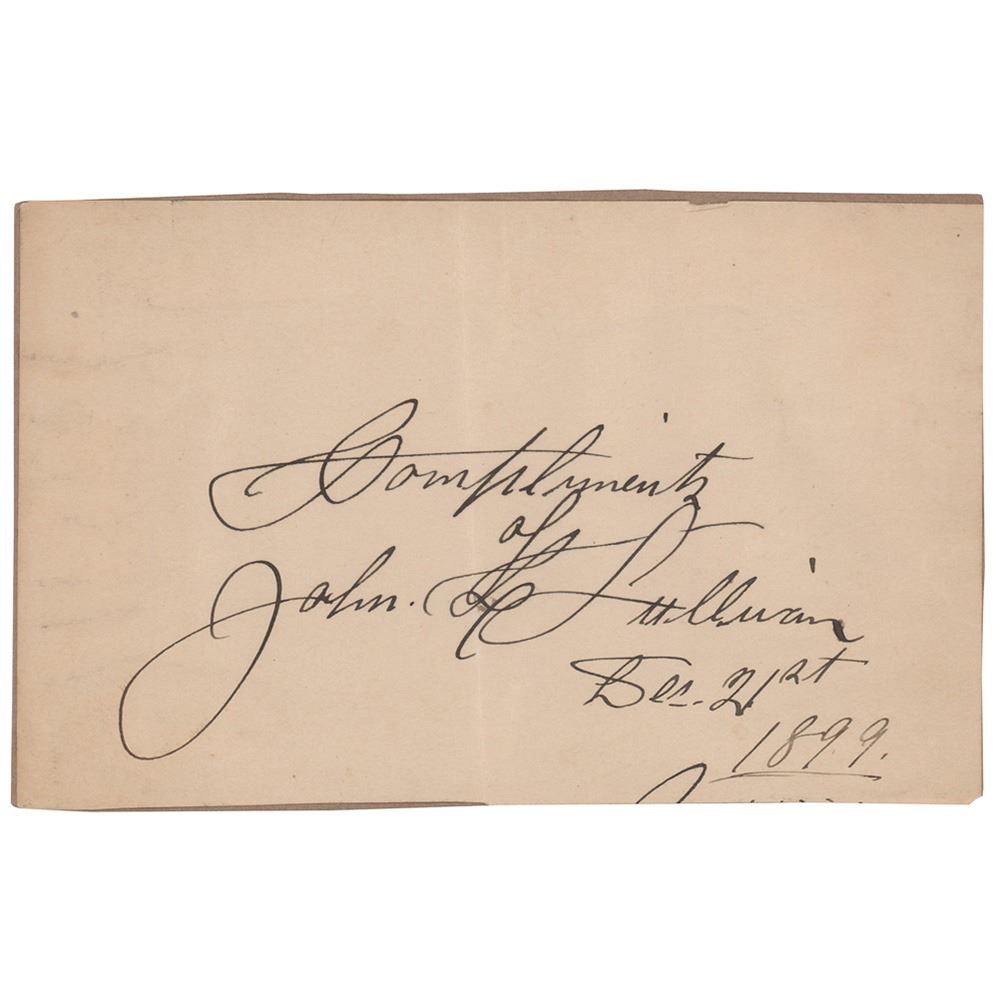 Compliments
of
John. L Sullivan
Dec. 21st
1899.